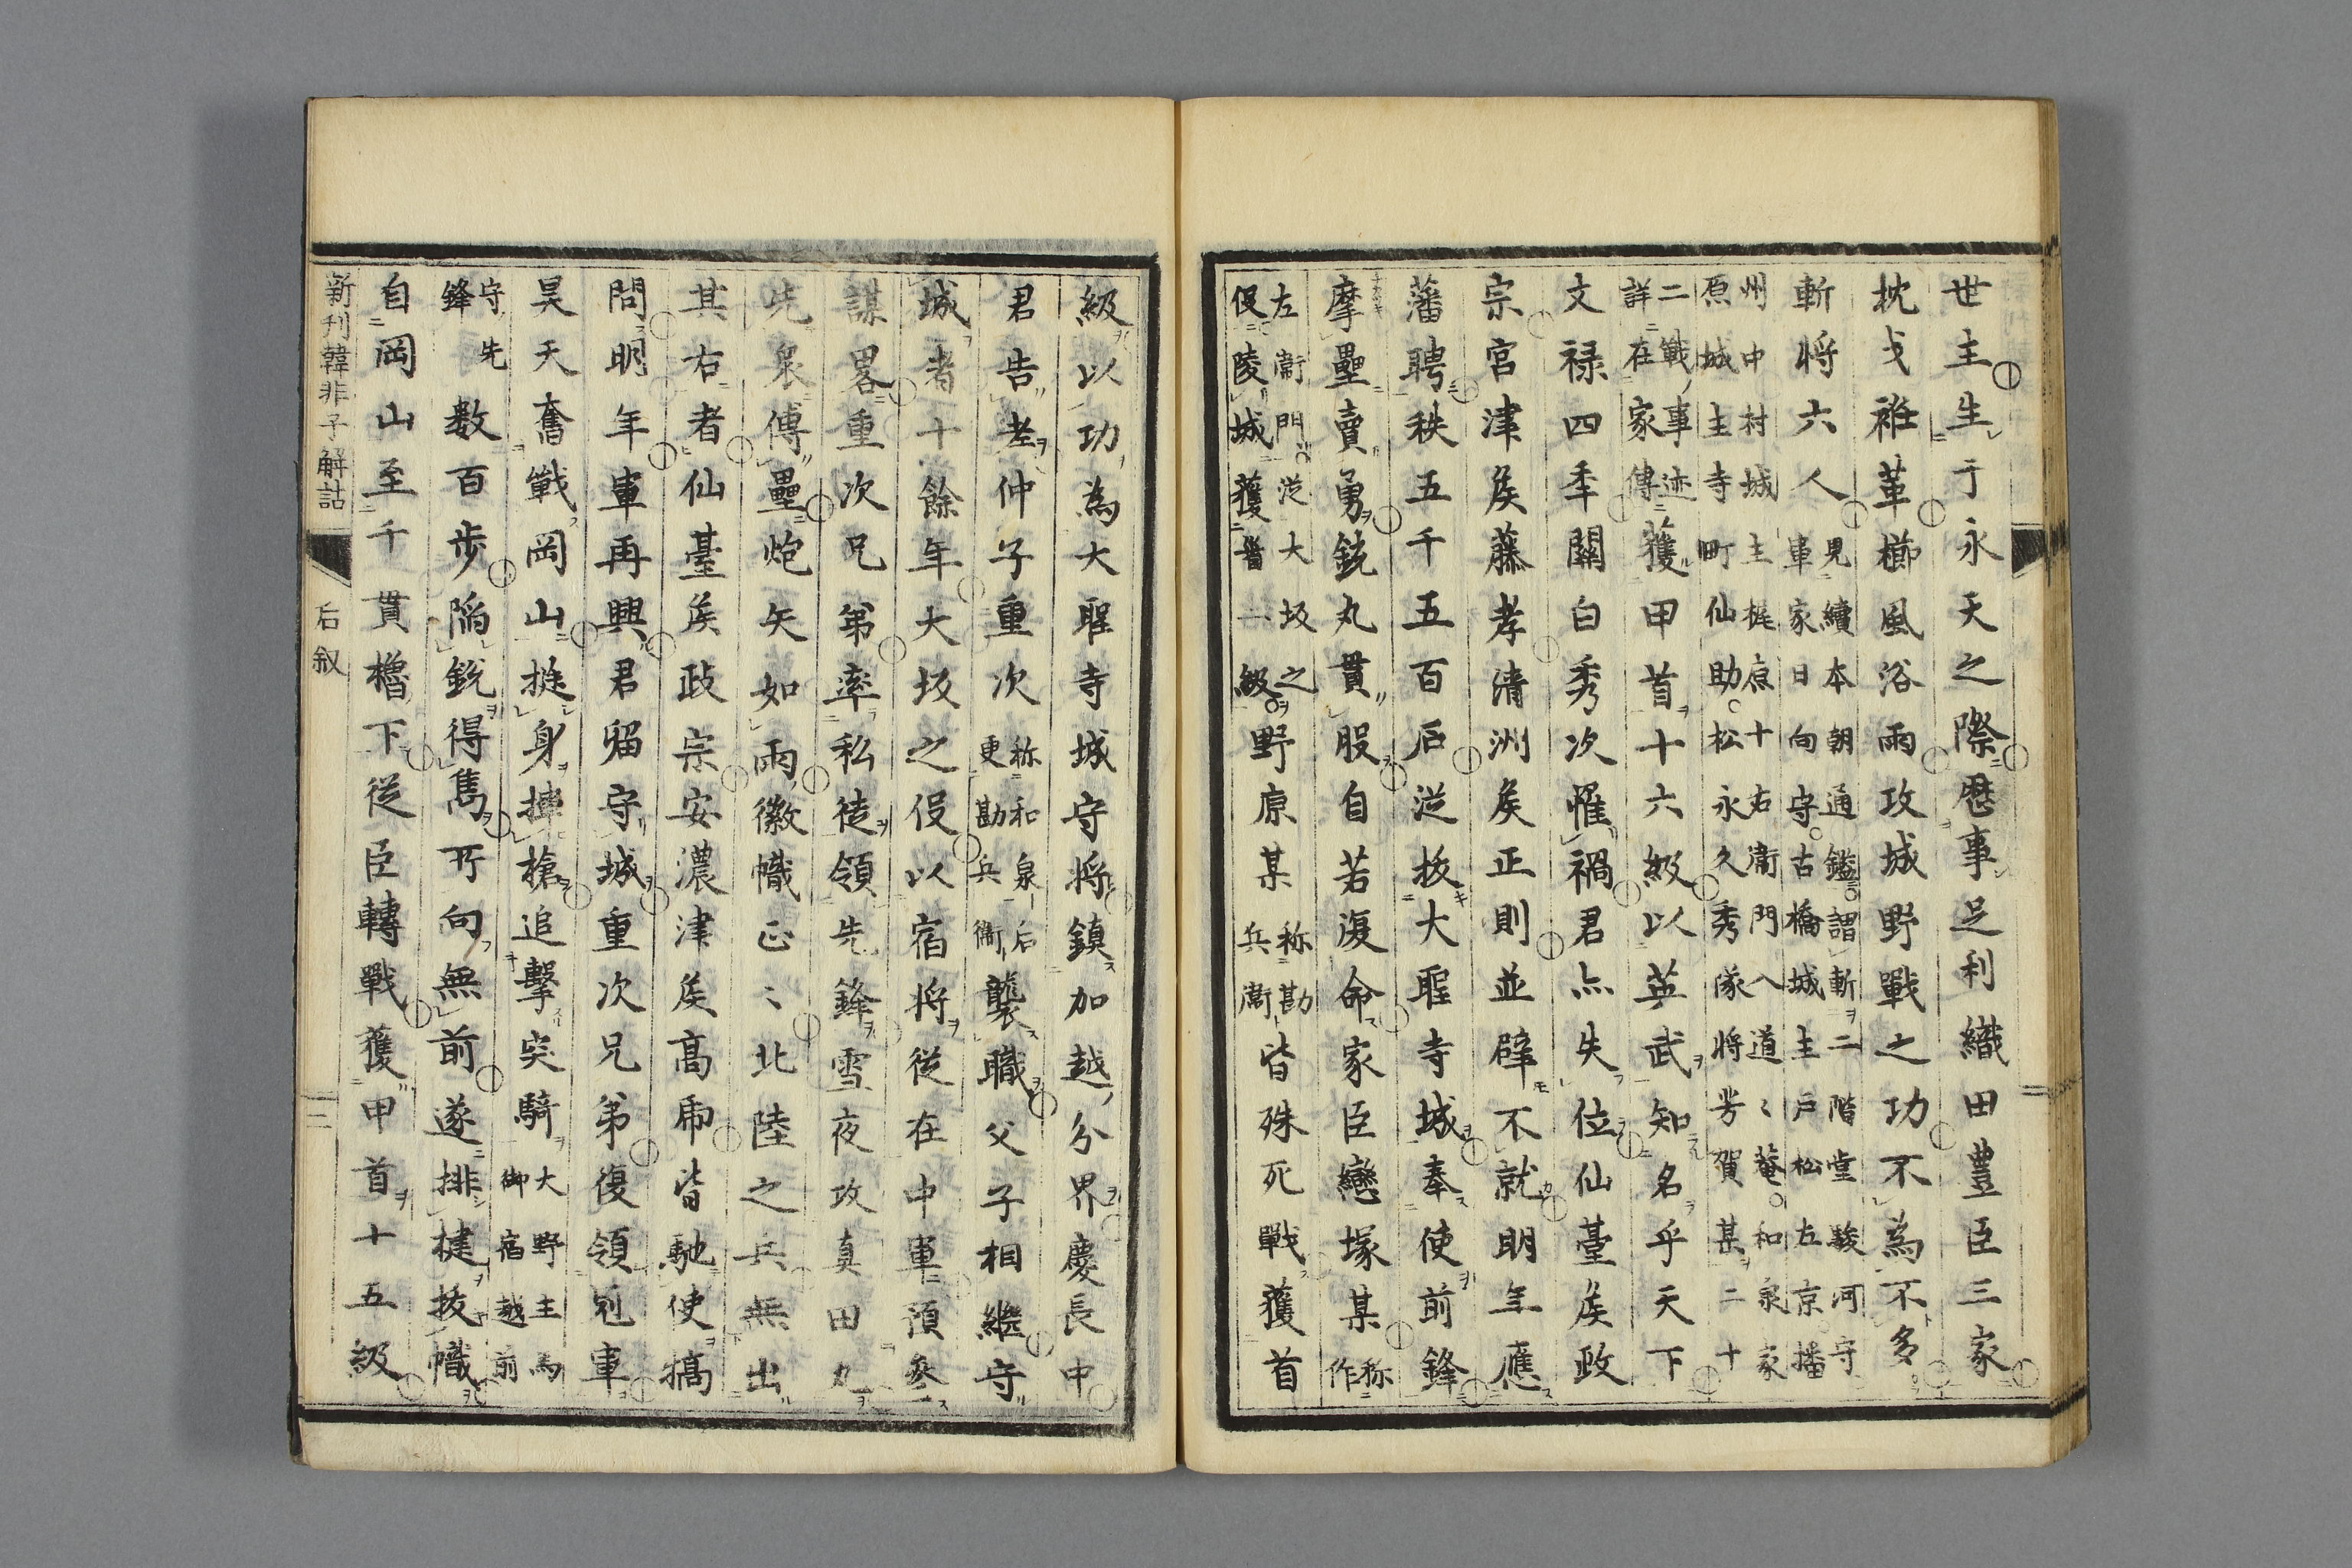 世主生于永天之際歷事足利織田豊臣三家
枕戈袵革櫛風浴雨攻城野戰之功不為不多
斬将六人
見續本朝通鑑謂斬二階堂駿河守
軍家日向守古橋城主戸松左京播
州中村城主梶原十右衛門入道〻菴和泉家
原城主寺町仙助松永久秀隊将芳賀甚二十
二戰事迹
詳在家傳
獲甲首十六級以英武知名乎天下
文禄四秊關白秀次惟禍君亦失位仙臺矦政
宗宮津矦藤孝清洲矦正則並辟不就明年應
藩聘秩五千五百石從抜大聖寺城奉使前鋒
摩壘賣勇銃丸貫股自若復命家臣戀塚某
称
作
左衛門從大坂之
役陵城獲首一級
野原某
称勘
兵衛
皆殊死戰獲首
級以功為大聖寺城守将鎮加越分界慶長中
君告老仲子重次
称和泉后
更勘兵衛
襲職父子相繼守
城者十餘年大坂之役以宿将從在中軍預參
謀畧重次兄弟率私徒領先鋒雪夜攻真田丸
先衆傅壘炮矢如雨徽幟正〻北陸之兵無出
其右者仙臺矦政宗安濃津矦高虎皆馳使犒
問明年軍再興君留守城重次兄弟復領別軍
昊天奮戰岡山挺身揮槍追擊突騎
大野主馬
御宿越前
守先
鋒
數百歩陥銳得雋所向無前遂排楗抜幟
自岡山至千貫櫓下從臣轉戰獲甲首十五級
新刊韓非子解詁
后叙
二